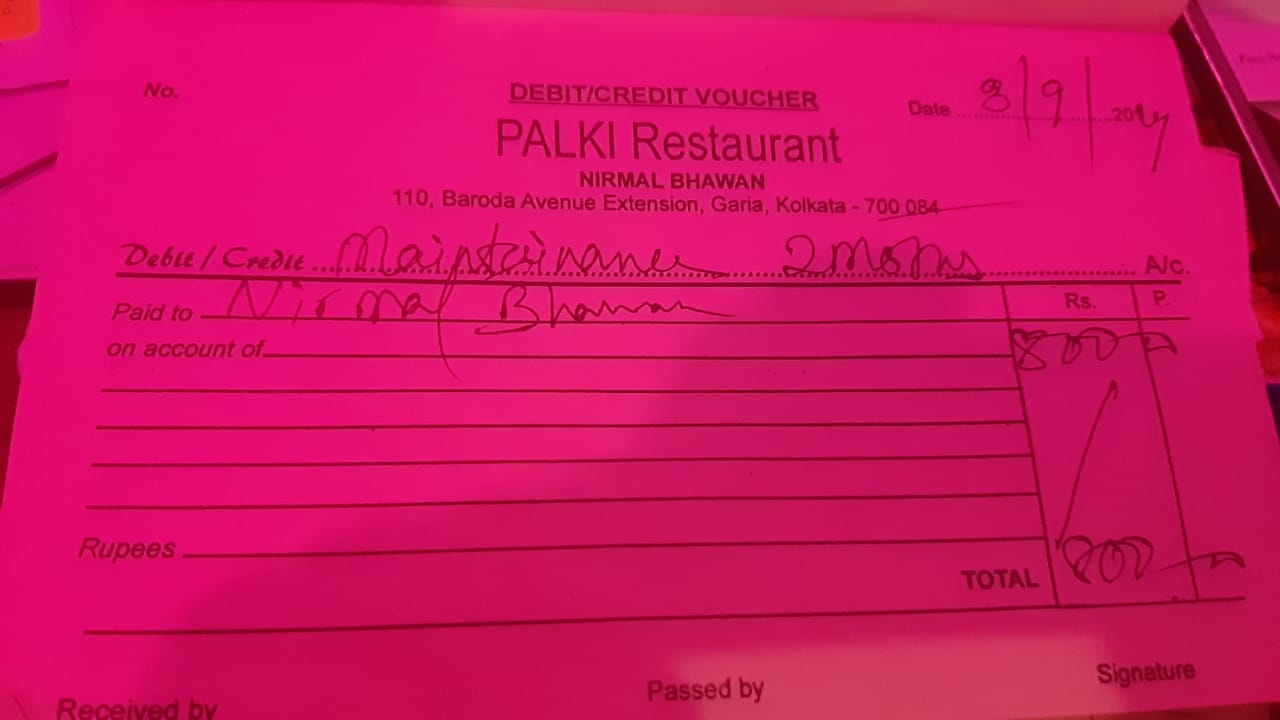 No.
DEBIT/CREDIT VOUCHER
Date 3/9/2024
PALKI Restaurant
NIRMAL BHAWAN
110, Baroda Avenue Extension, Garia, Kolkata - 700 084
Debit / Credit Maintainance 2 A/c.
Paid to Nirmal Bhawan Rs. P.
on account of 800
Rupees
TOTAL 800
Signature
Passed by
Received by